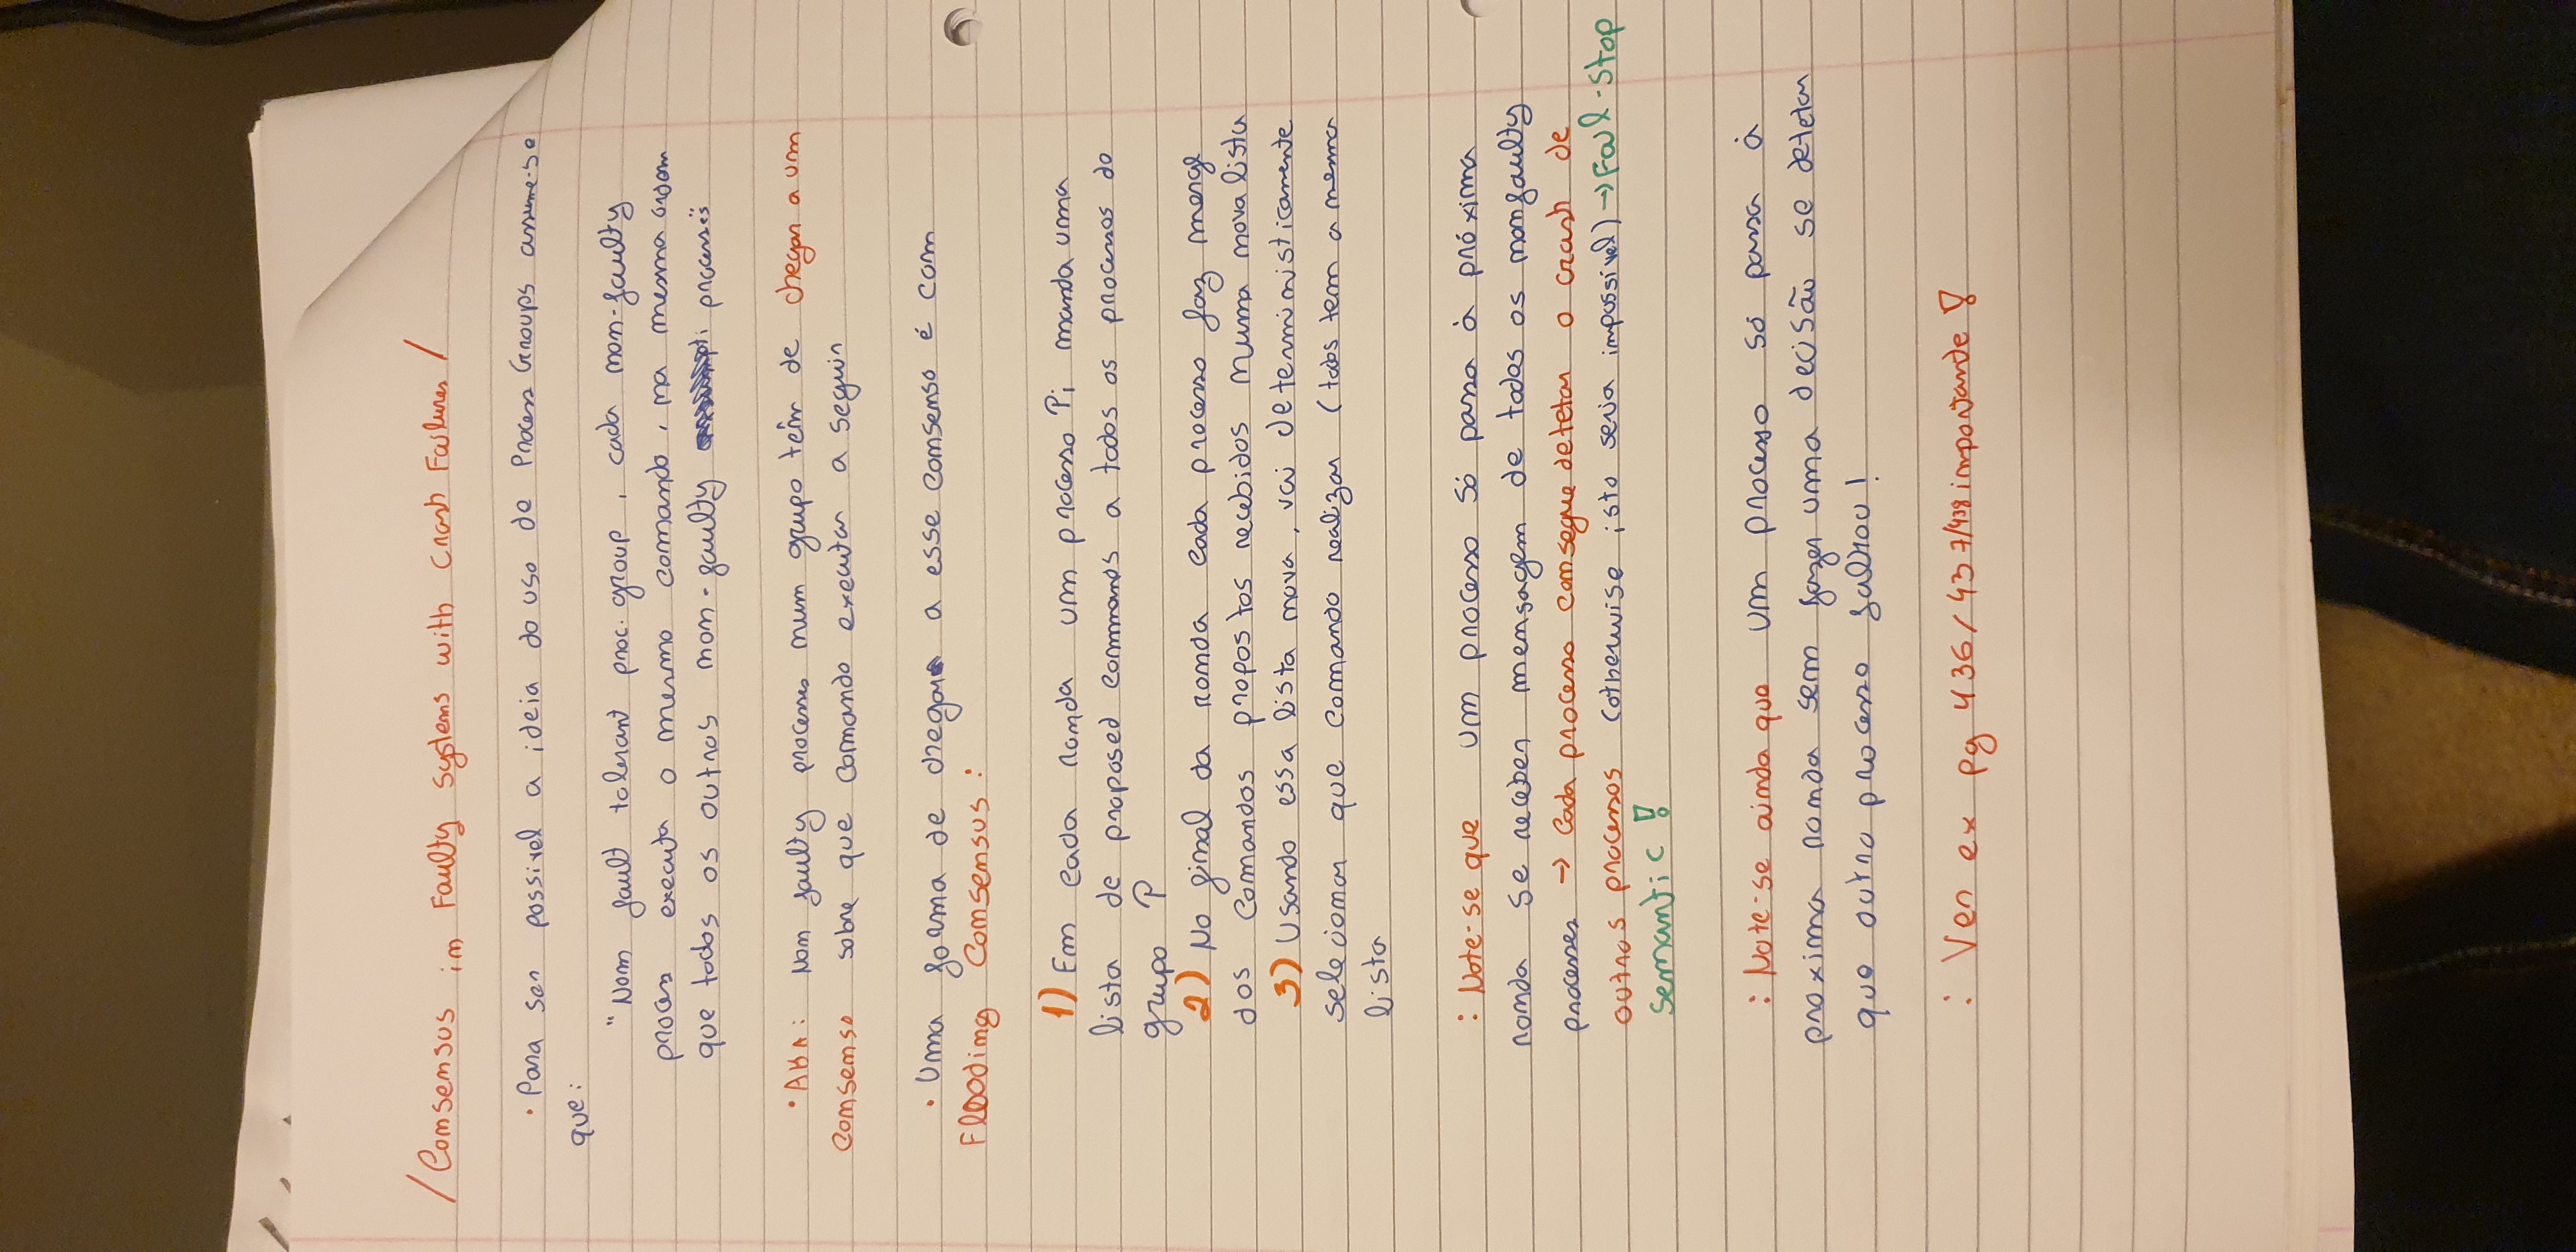 /Consensus in Faulty Systems with Crash Failures/
• Para ser possivel a ideia do uso de Process Groups assume-se
que:
"Nom fault tolerant proc. group, cada non-faulty
process executa o mesmo comando, na mesma ordem
que todos os outros non-faulty processes"
• AKA: Non faulty processes num grupo têm de chegar a um
Consenso sobre que comando executar a seguir
• Uma forma de chegar a esse consenso é com
Flooding Consensus:
1) Em cada ronda um processo Pi manda uma
lista de proposed commands a todos os processos do
grupo P
2) No final da ronda cada processo faz merge
dos comandos propostos recebidos numa nova lista
3) Usando essa lista nova, vai deterministicamente
selecionar que comando realizar (todos tem a mesma
lista
: Note-se que um processo só passa à próxima
ronda se receber mensagem de todos os nonfaulty
processes → Cada processo consegue detetar o crash de
outros processos (otherwise isto seria impossível) → Fail-Stop
Semantic!
: Note-se ainda que um processo só passa à
proxima ronda sem fazer uma decisão se detetar
que outro processo falhou!
: Ver ex pg 436/437/438 importante!